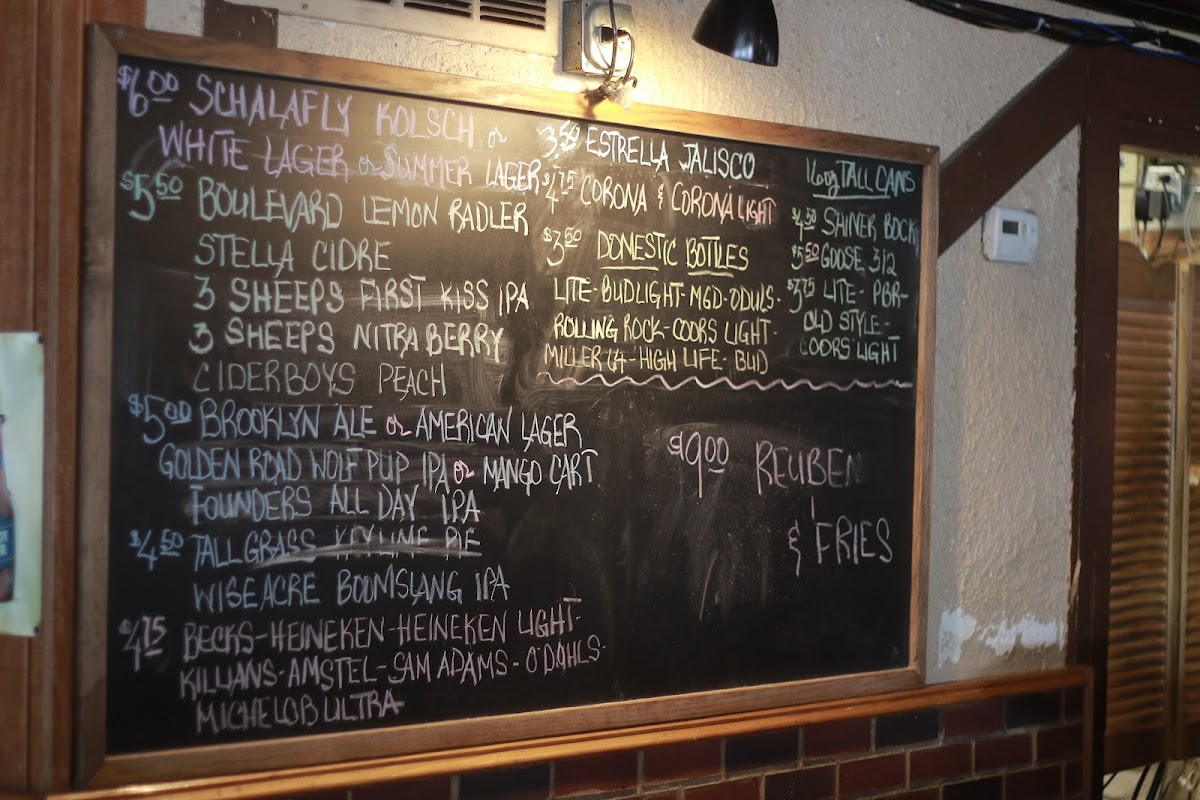 $6.00 SCHALAFLY KOLSCH or
WHITE LAGER or SUMMER LAGER
$5.50 BOULEVARD LEMON RADLER
STELLA CIDRE
3 SHEEPS FIRST KISS IPA
3 SHEEPS NITRA BERRY
CIDERBOYS PEACH
$5.00 BROOKLYN ALE or AMERICAN LAGER
GOLDEN ROAD WOLF PUP IPA or MANGO CART
FOUNDERS ALL DAY IPA
$4.50 TALLGRASS KEY LIME PIE
WISEACRE BOOMSLANG IPA
$4.75 BECKS-HEINEKEN-HEINEKEN LIGHT-
KILLIANS-AMSTEL-SAM ADAMS-O'DOHLS-
MICHELOB ULTRA
3.50 ESTRELLA JALISCO
$4.75 CORONA & CORONA LIGHT
$3.50 DONESTIC BOTTLES
LITE-BUDLIGHT-MGD-ODULS-
ROLLING ROCK-COORS LIGHT-
MILLER 64-HIGH LIFE-BUD
16oz TALL CANS
$4.50 SHINER BOCK
$5.50 GOOSE 312
$3.75 LITE-PBR-
OLD STYLE-
COORS LIGHT
$9.00 REUBEN
& FRIES